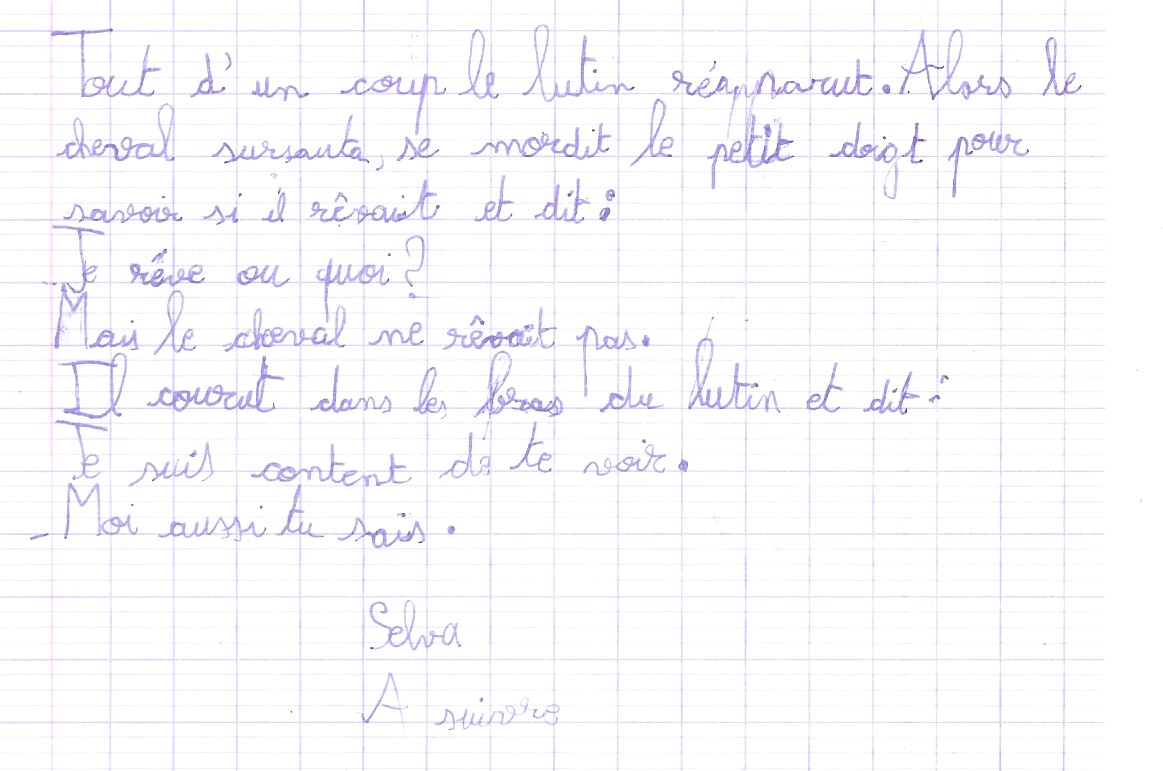 Tout d'un coup le lutin réapparut. Alors le
cheval sursauta, se mordit le petit doigt pour
savoir si il rêvait et dit :
- Je rêve ou quoi ?
Mais le cheval ne rêvait pas.
Il courut dans les bras du lutin et dit :
Je suis content de te voir.
- Moi aussi tu sais.
Selva
A suivre